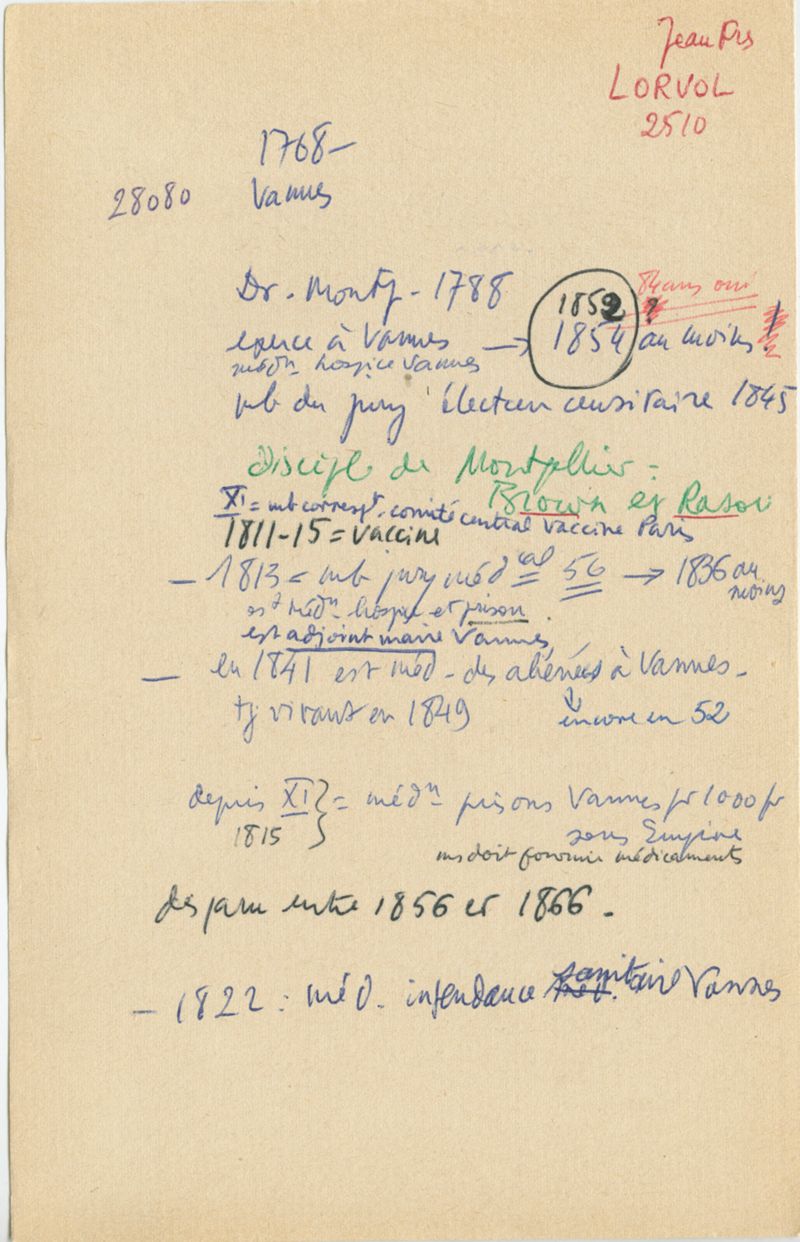 Jean Frs
LORVOL
2510
1768-
28080 Vannes
Dr. Montp - 1788
84 ans oui
1852 ?
exerce à Vannes → 1854 au moins !
médn hospice Vannes
mb du jury électeur censitaire 1845
Discipl de Montpellier =
Brown et Rasori
XI = mb correspt. comité central vaccine Paris
1811-15 = vaccine
— 1813 = mb jury médcal 56 → 1836 au moins
est médn hospice et prison.
est adjoint maire Vannes
— en 1841 est méd. des aliénés à Vannes.
tj vivant en 1849 encore en 52
depuis XI } = médn prisons Vannes pr 1000 fr
1815 sous Empire
ms doit fournir médicaments
disparu entre 1856 et 1866.
— 1822 : méd. intendance sanitaire Vannes